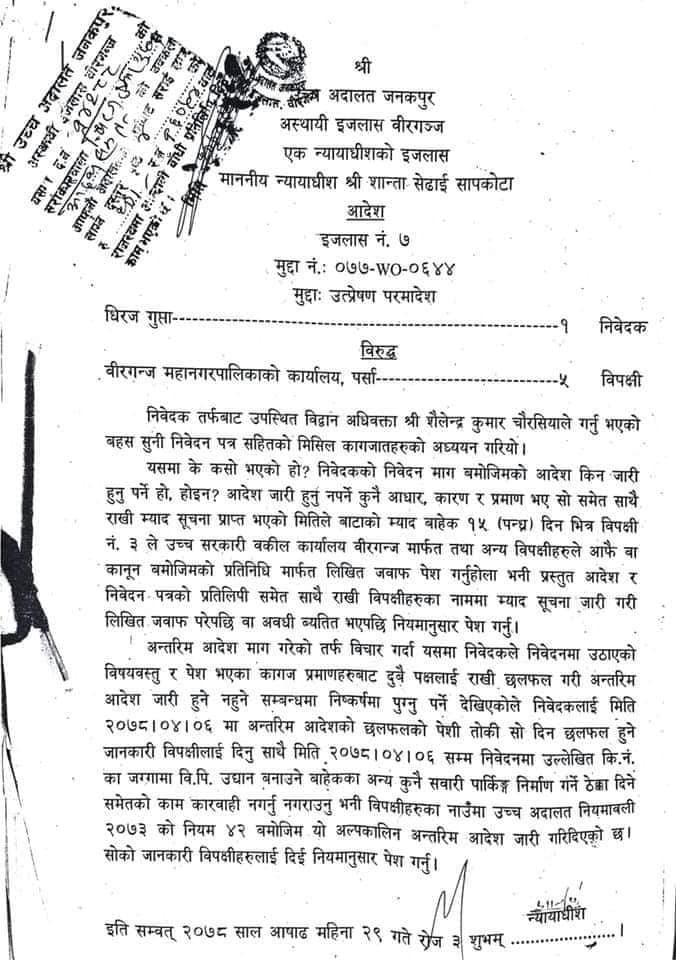 श्री उच्च अदालत जनकपुर
अस्थायी इजलास वीरगञ्ज
श्री
उच्च अदालत जनकपुर
अस्थायी इजलास वीरगञ्ज
एक न्यायाधीशको इजलास
माननीय न्यायाधीश श्री शान्ता सेढाई सापकोटा
आदेश
इजलास नं. ७
मुद्दा नं.: ०७७-WO-०६४४
मुद्दाः उत्प्रेषण परमादेश
धिरज गुप्ता----------------------------------------------------१ निवेदक
विरुद्ध
वीरगन्ज महानगरपालिकाको कार्यालय, पर्सा-------------------------५ विपक्षी
निवेदक तर्फबाट उपस्थित विद्वान अधिवक्ता श्री शैलेन्द्र कुमार चौरसियाले गर्नु भएको
बहस सुनी निवेदन पत्र सहितको मिसिल कागजातहरुको अध्ययन गरियो।
यसमा के कसो भएको हो? निवेदकको निवेदन माग बमोजिमको आदेश किन जारी
हुनु पर्ने हो, होइन? आदेश जारी हुनु नपर्ने कुनै आधार, कारण र प्रमाण भए सो समेत साथै
राखी म्याद सूचना प्राप्त भएको मितिले बाटाको म्याद बाहेक १५ (पन्ध्र) दिन भित्र विपक्षी
नं. ३ ले उच्च सरकारी वकील कार्यालय वीरगन्ज मार्फत तथा अन्य विपक्षीहरुले आफै वा
कानून बमोजिमको प्रतिनिधि मार्फत लिखित जवाफ पेश गर्नुहोला भनी प्रस्तुत आदेश र
निवेदन पत्रको प्रतिलिपी समेत साथै राखी विपक्षीहरुका नाममा म्याद सूचना जारी गरी
लिखित जवाफ परेपछि वा अवधी ब्यतित भएपछि नियमानुसार पेश गर्नु।
अन्तरिम आदेश माग गरेको तर्फ विचार गर्दा यसमा निवेदकले निवेदनमा उठाएको
विषयवस्तु र पेश भएका कागज प्रमाणहरुबाट दुबै पक्षलाई राखी छलफल गरी अन्तरिम
आदेश जारी हुने नहुने सम्बन्धमा निष्कर्षमा पुग्नु पर्ने देखिएकोले निवेदकलाई मिति
२०७८।०४।०६ मा अन्तरिम आदेशको छलफलको पेशी तोकी सो दिन छलफल हुने
जानकारी विपक्षीलाई दिनु साथै मिति २०७८।०४।०६ सम्म निवेदनमा उल्लेखित कि.नं.
का जग्गामा वि.पि. उद्यान बनाउने बाहेकका अन्य कुनै सवारी पार्किङ्ग निर्माण गर्ने ठेक्का दिने
समेतको काम कारवाही नगर्नु नगराउनु भनी विपक्षीहरुका नाउँमा उच्च अदालत नियमाबली
२०७३ को नियम ४२ बमोजिम यो अल्पकालिन अन्तरिम आदेश जारी गरिदिएको छ।
सोको जानकारी विपक्षीहरुलाई दिई नियमानुसार पेश गर्नु।
न्यायाधीश
इति सम्वत् २०७८ साल आषाढ महिना २९ गते रोज ३ शुभम् ......................।